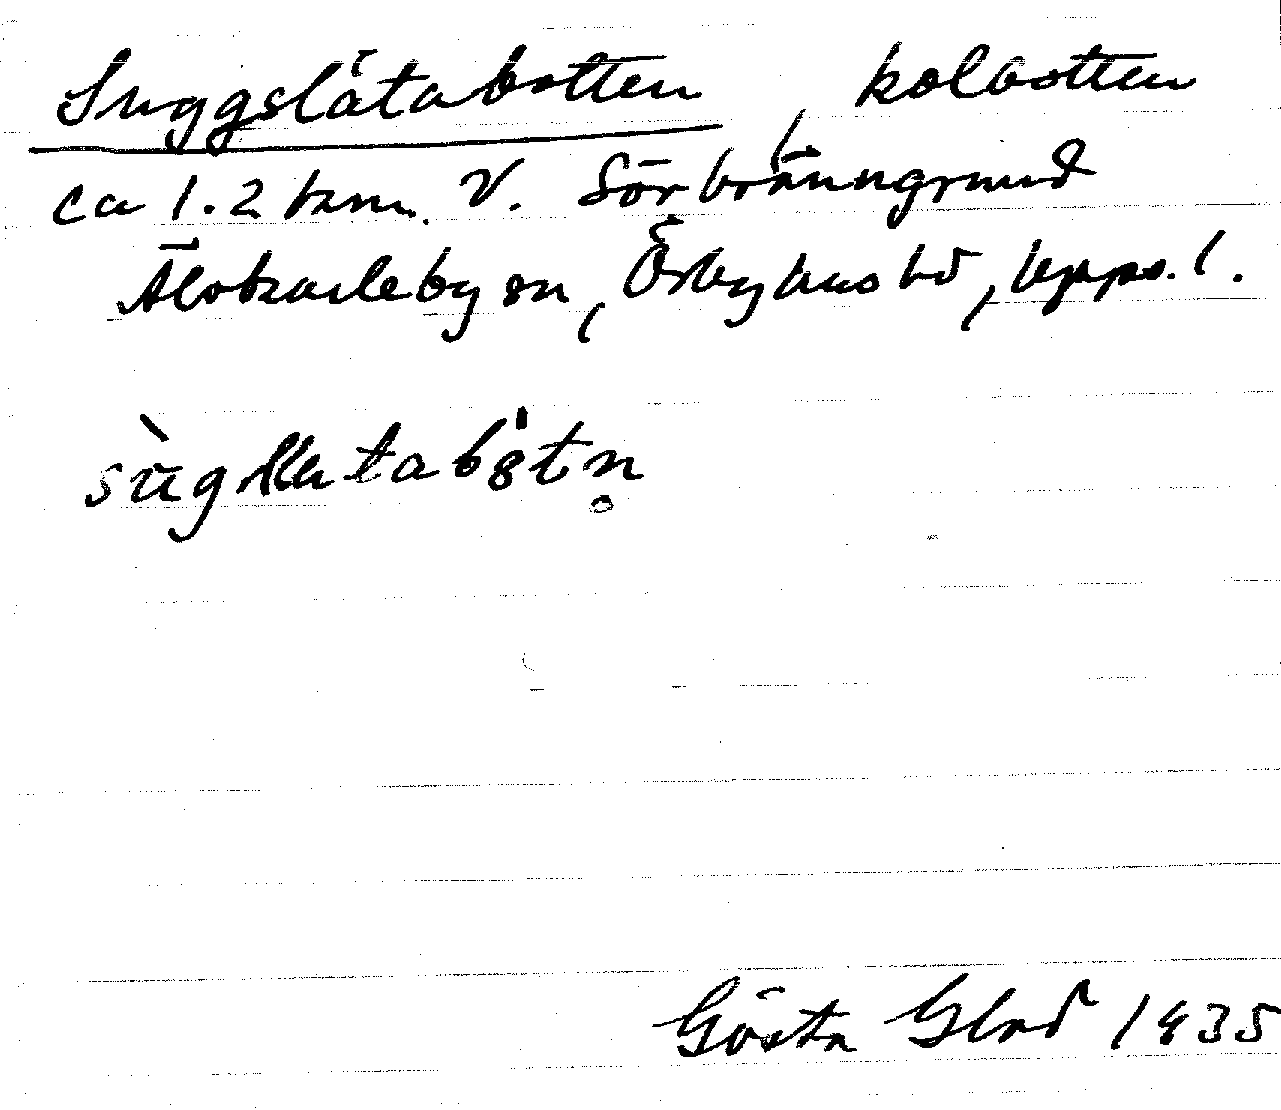 Suggslåtabotten, kolbotten
ca 1.2 km. V. Sörbränngrund
Älvkarleby sn, Örbyhus hd, Upps. l.
Gösta Glad 1935